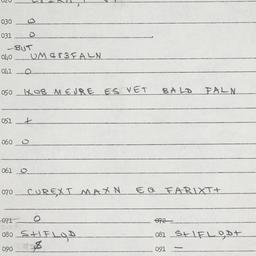 030 0
031 0
-BUT
040 UMGTSFALN
041 0
050 MEVRE ES VET BALD FALN
051 +
060 0
061 0
070 CUREXT MAXN EQ FARIXT+
071 0 072
080 S+IFLO,D 081 S+IFLO,D+
090 091 -